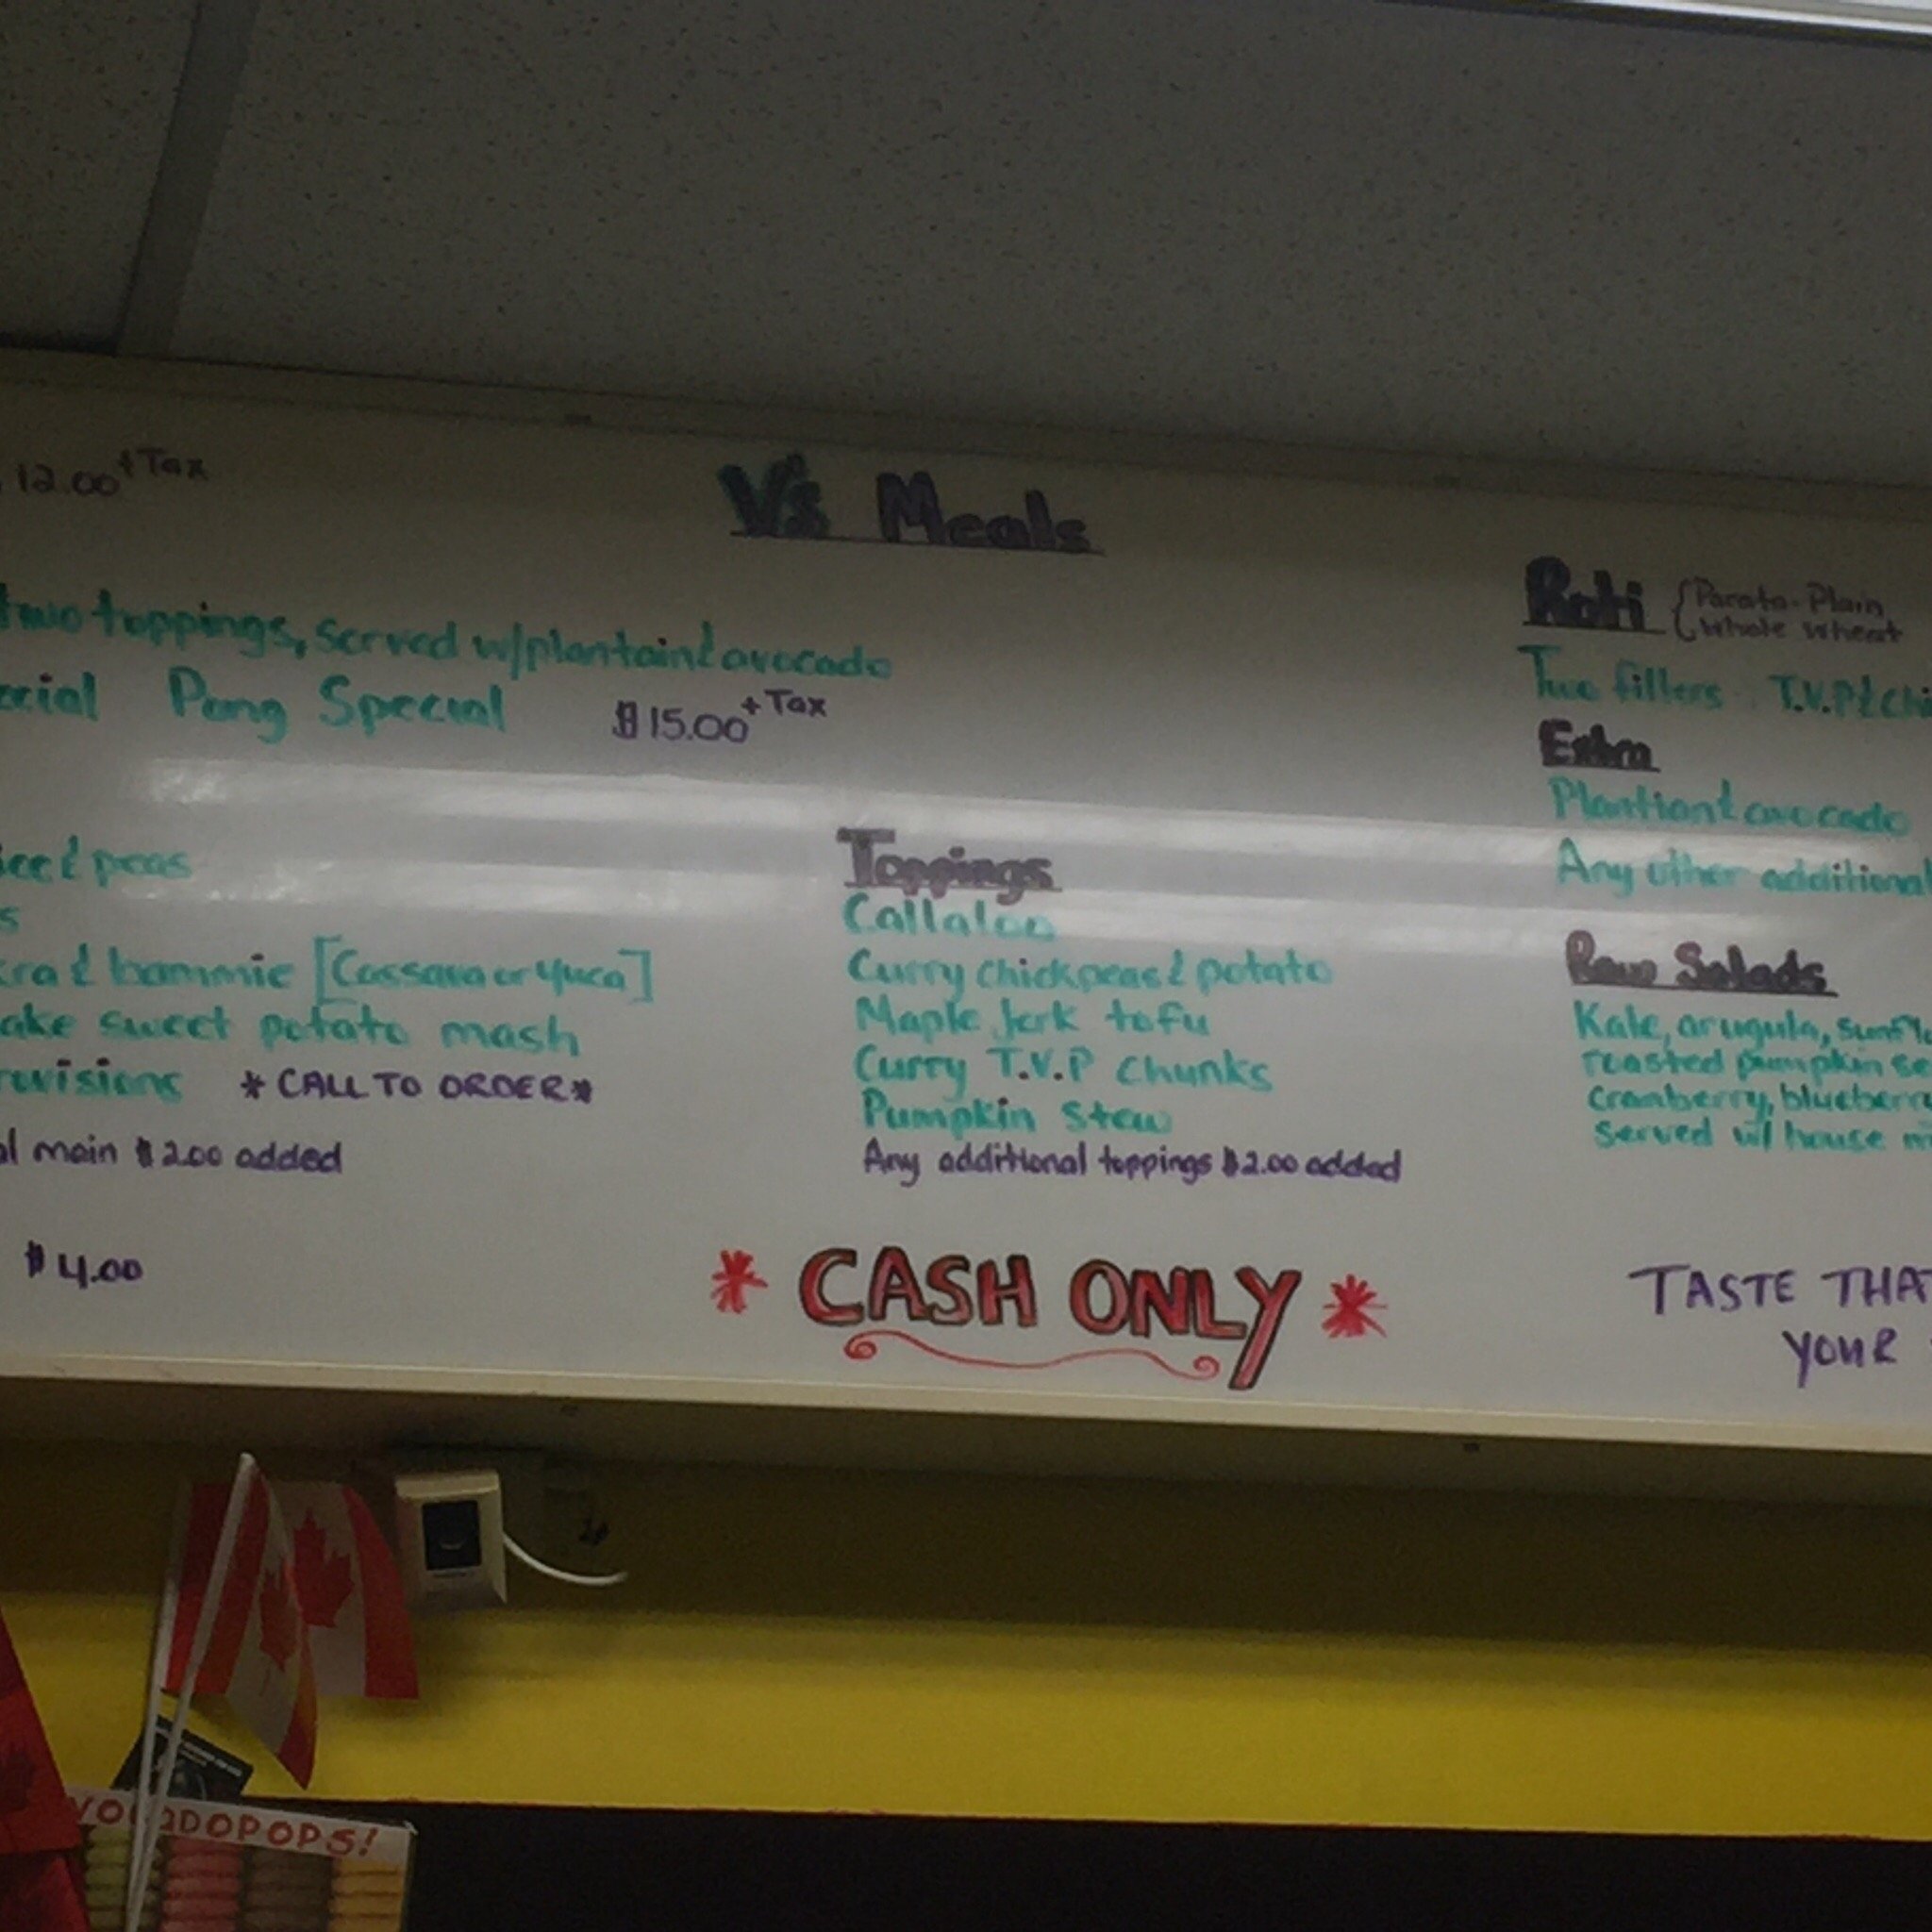 12.00 + Tax
V's Meals
two toppings, served w/plantain & avocado
Pang Special $15.00 + Tax
& peas
& bammie [Cassava or yuca]
sweet potato mash
* CALL TO ORDER *
main $2.00 added
$4.00
Toppings
Callaloo
Curry chickpeas & potato
Maple Jerk tofu
Curry T.V.P chunks
Pumpkin stew
Any additional toppings $2.00 added
* CASH ONLY *
Roti {Parata-Plain
Whole wheat
Two fillers T.V.P &
Extra
Plantion & avocado
Any other additional
Raw Salads
Kale, arugula,
roasted pumpkin
Cranberry, blueberry
Served w/ house
TASTE
YOUR
VOODOPOPS!